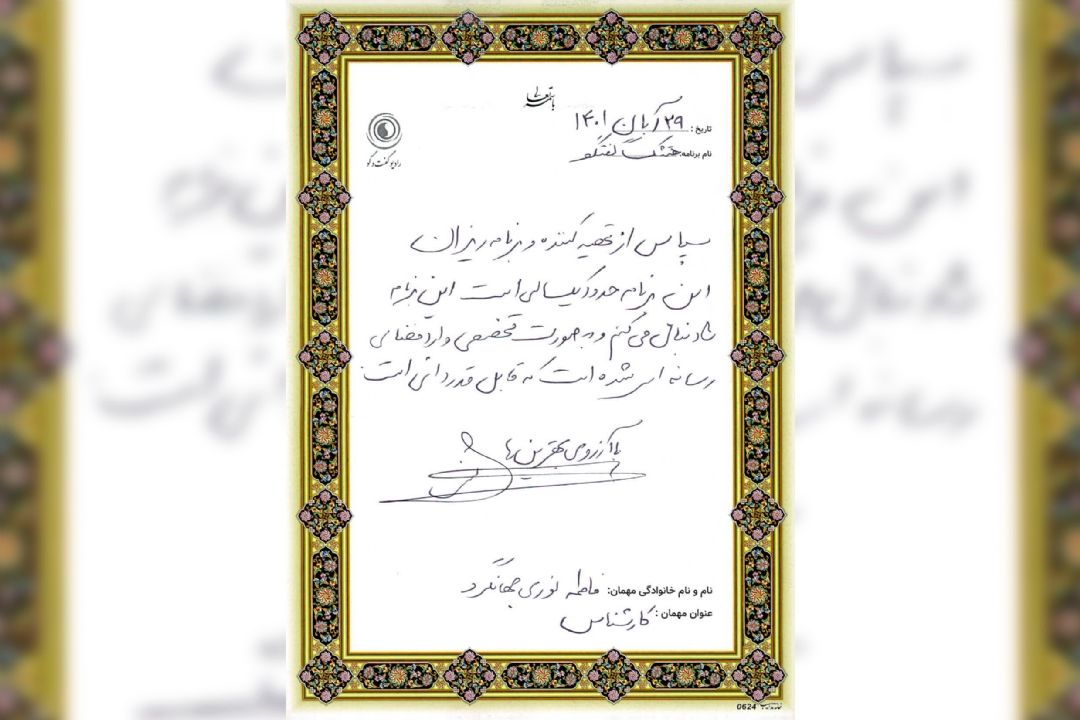 باسمه تعالی
تاریخ: ۲۹ آبان ۱۴۰۱
نام برنامه: هشتگ گفتگو
رادیو گفت و گو
سپاس از تهیه کننده و برنامه ریزان
این برنامه حدود یکسالی است این برنامه
را دنبال می کنم و به صورت تخصصی وارد فضای
رسانه ای شده است که قابل قدردانی است.
با آرزوی بهترین ها
نام و نام خانوادگی مهمان: فاطمه نوری جهانگرد
عنوان مهمان: کارشناس
0624